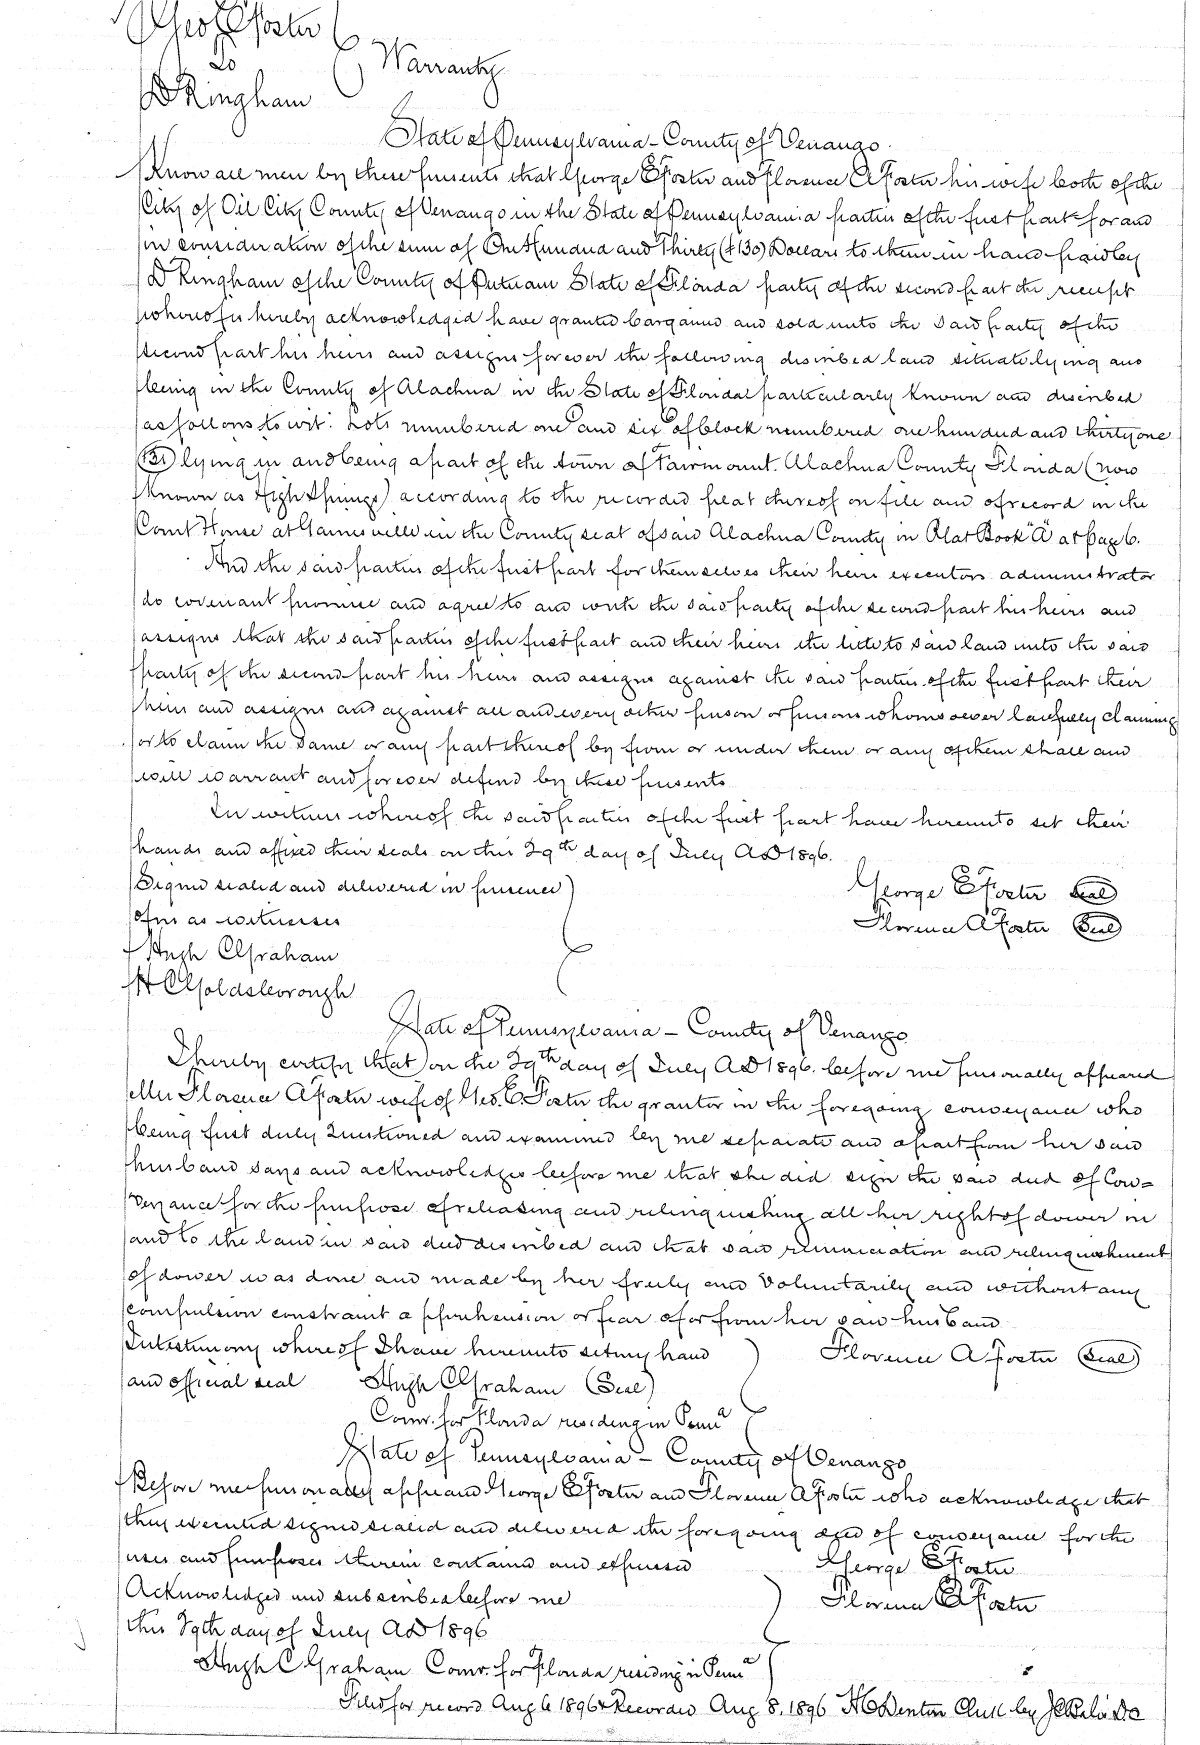 Geo E Foster
To
D Ringham
Warranty
State of Pennsylvania - County of Venango.
Know all men by these presents that George E Foster and Florence A Foster his wife both of the
City of Oil City County of Venango in the State of Pennsylvania parties of the first part for and
in consideration of the sum of One Hundred and Thirty ($130) Dollars to them in hand paid by
D Ringham of the County of Putnam State of Florida party of the second part the receipt
whereof is hereby acknowledged have granted bargained and sold unto the said party of the
second part his heirs and assigns forever the following discribed land situate lying and
being in the County of Alachua in the State of Florida particularly known and discribed
as follows to wit: Lots numbered one and six of block numbered one hundred and thirty one
(131) lying in and being a part of the town of Fairmount. Alachua County Florida (now
known as High Springs) according to the recorded plat thereof on file and of record in the
Court House at Gainesville in the County seat of said Alachua County in Plat Book "A" at page 6.
And the said parties of the first part for themselves their heirs executors administrator
do covenant promise and agree to and with the said party of the second part his heirs and
assigns that the said parties of the first part and their heirs the title to said land unto the said
party of the second part his heirs and assigns against the said parties of the first part their
heirs and assigns and against all and every other person or persons whomsoever lawfully claiming
or to claim the same or any part thereof by from or under them or any of them shall and
will warrant and forever defend by these presents
In witness whereof the said parties of the first part have hereunto set their
hands and affixed their seals on this 29th day of July AD 1896.
Signed sealed and delivered in presence
of us as witnesses
George E Foster Seal
Florence A Foster Seal
Hugh C Graham
H C Goldsborough
State of Pennsylvania - County of Venango
I hereby certify that on the 29th day of July AD 1896. before me personally appeared
Mrs Florence A Foster wife of Geo. E. Foster the grantor in the foregoing conveyance who
being first duly questioned and examined by me separate and apart from her said
husband says and acknowledges before me that she did sign the said deed of Con=
veyance for the purpose of releasing and relinquishing all her right of dower in
and to the land in said deed described and that said renunciation and relinquishment
of dower was done and made by her freely and voluntarily and without any
compulsion constraint apprehension or fear of or from her said husband
In testimony whereof I have hereunto set my hand
Florence A Foster Seal
and official seal Hugh C Graham (Seal)
Comr. for Florida residing in Penna
State of Pennsylvania - County of Venango
Before me personally appeard George E Foster and Florence A Foster who acknowledge that
they executed signed sealed and delivered the foregoing deed of conveyance for the
uses and purposes therein contained and expressed
George E Foster
Acknowledged and subscribed before me
Florence A Foster
this 29th day of July AD 1896
Hugh C Graham Comr. for Florida residing in Penna
Filed for record Aug 6 1896 & Recorded Aug 8, 1896 H C Denton Clerk by DC